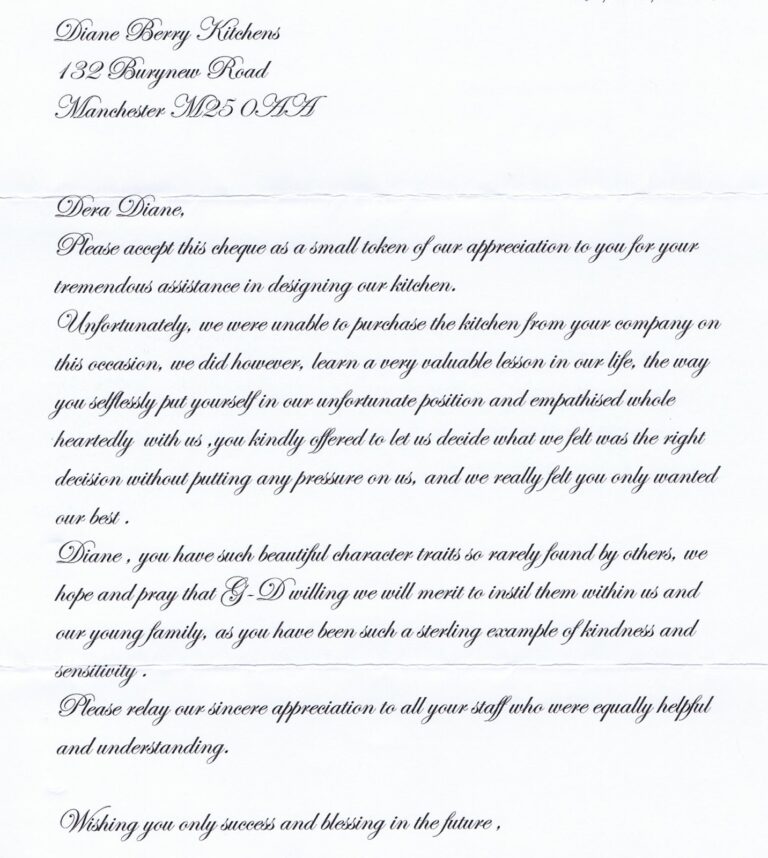 Diane Berry Kitchens
132 Burynew Road
Manchester M25 0AA
Dera Diane,
Please accept this cheque as a small token of our appreciation to you for your
tremendous assistance in designing our kitchen.
Unfortunately, we were unable to purchase the kitchen from your company on
this occasion, we did however, learn a very valuable lesson in our life, the way
you selflessly put yourself in our unfortunate position and empathised whole
heartedly with us ,you kindly offered to let us decide what we felt was the right
decision without putting any pressure on us, and we really felt you only wanted
our best .
Diane , you have such beautiful character traits so rarely found by others, we
hope and pray that G-D willing we will merit to instil them within us and
our young family, as you have been such a sterling example of kindness and
sensitivity .
Please relay our sincere appreciation to all your staff who were equally helpful
and understanding.
Wishing you only success and blessing in the future ,